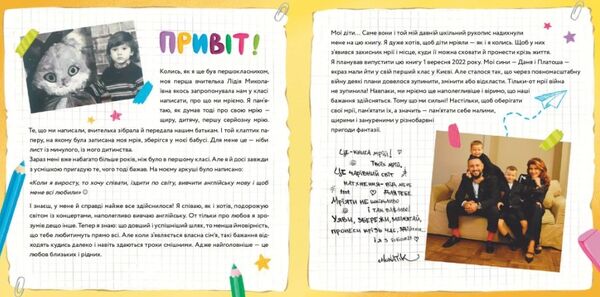 ПРИВІТ!
Колись, як я ще був першокласником,
моя перша вчителька Лідія Микола-
ївна якось запропонувала нам у класі
написати, про що ми мріємо. Я пам'я-
таю, як думав тоді про свою мрію —
щиру, дитячу, першу серйозну мрію.
Те, що ми написали, вчителька зібрала й передала нашим батькам. І той клаптик па-
перу, на якому була записана моя мрія, зберігся у моєї бабусі. Для мене це — ніби
лист із минулого, із мого дитинства.
Зараз мені вже набагато більше років, ніж було в першому класі. Але я й досі завжди
з усмішкою пригадую те, чого тоді бажав. На моєму аркуші було написано:
«Коли я виросту, то хочу співати, їздити по світу, вивчити англійську мову і щоб
мене всі любили»
І знаєш, у мене й справді майже все здійснилося! Я співаю, як і хотів, подорожую
світом із концертами, наполегливо вивчаю англійську. От тільки про любов я зро-
зумів дещо інше. Тепер я знаю: що довший і успішніший шлях, то менша ймовірність,
що тебе любитимуть прямо всі. Але коли з'являється власна сім'я, такі бажання від-
ходять кудись далеко і навіть здаються трохи смішними. Адже найголовніше — це
любов близьких і рідних.
Мої діти... Саме вони і той мій давній шкільний рукопис надихнули
мене на цю книгу. Я дуже хотів, щоб діти мріяли — як і я колись. Щоб у них
з'явився захисник мрії і місце, куди її можна сховати й пронести крізь життя.
Я планував випустити цю книгу 1 вересня 2022 року. Мої сини — Даня і Платоша —
якраз мали йти у свій перший клас у Києві. Але сталося так, що через повномасштабну
війну деякі плани довелося зупинити, змінити або відкласти. Тільки-от мрії війна
не зупинила! Навпаки, ми мріємо ще наполегливіше і віримо, що наші
бажання здійсняться. Тому що ми сильні! Настільки, щоб оберігати
свої мрії, пам'ятати їх, а значить — пам'ятати себе малими,
щирими і зануреними у різнобарвні
пригоди фантазії.
ЦЕ – КНИГА МРІЇ!
ТВОЇХ МРІЙ,
ЦЕ ЧАРІВНИЙ СВІТ
НАТХНЕННЯ – ВІД МЕНЕ
ДЛЯ ТЕБЕ.
МРІЯТИ НЕ ШКІДЛИВО
І ТАК ВАЖЛИВО!
УЯВИ, ЗБЕРЕЖИ, ПАМ'ЯТАЙ,
ПРОНЕСИ КРІЗЬ ЧАС,
А Я З
MONATIK